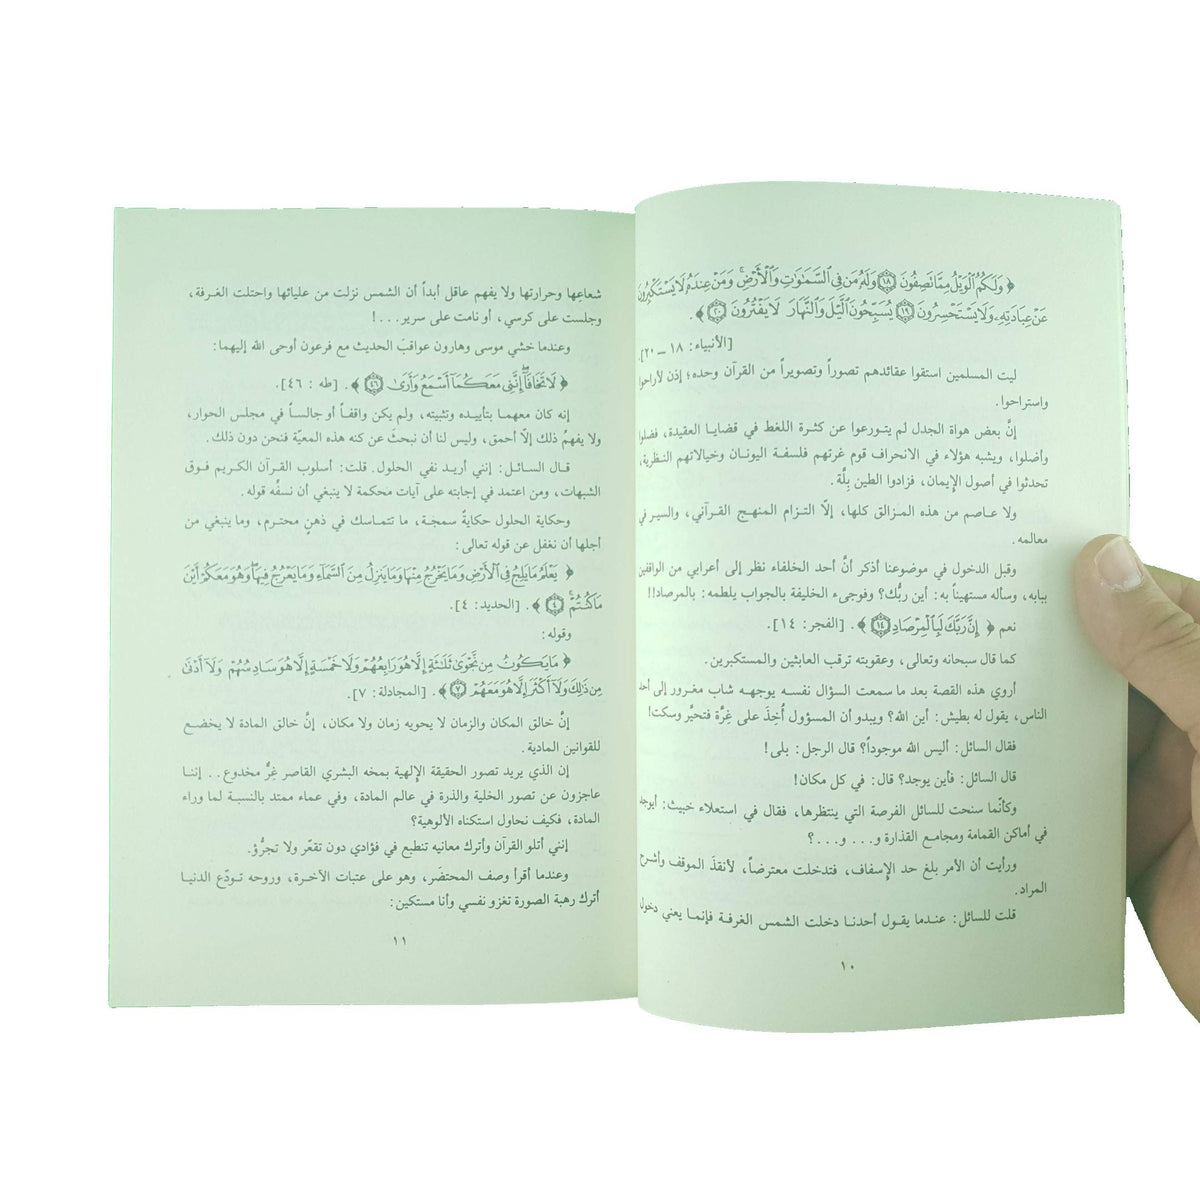 ﴿ وَلَكُمُ ٱلْوَيْلُ مِمَّا تَصِفُونَ ١٨ وَلَهُ مَن فِي ٱلسَّمَٰوَٰتِ وَٱلْأَرْضِ ۚ وَمَنْ عِندَهُ لَا يَسْتَكْبِرُونَ
عَنْ عِبَادَتِهِۦ وَلَا يَسْتَحْسِرُونَ ١٩ يُسَبِّحُونَ ٱلَّيْلَ وَٱلنَّهَارَ لَا يَفْتُرُونَ ٢٠ ﴾.
[الأنبياء: ١٨ – ٢٠].
ليت المسلمين استقوا عقائدهم تصوراً وتصويراً من القرآن وحده؛ إذن لأراحوا
واستراحوا.
إنَّ بعض هواة الجدل لم يتورعوا عن كثرة اللغط في قضايا العقيدة، فضلوا
وأضلوا، ويشبه هؤلاء في الانحراف قوم غرتهم فلسفة اليونان وخيالاتهم النظرية،
تحدثوا في أصول الإِيمان، فزادوا الطين بِلَّة.
ولا عاصم من هذه المزالق كلها، إلاّ التزام المنهج القرآني، والسير في
معالمه.
وقبل الدخول في موضوعنا أذكر أنَّ أحد الخلفاء نظر إلى أعرابي من الواقفين
ببابه، وسأله مستهيناً به: أين ربُّك؟ وفوجىء الخليفة بالجواب يلطمه: بالمرصاد!!
نعم ﴿ إِنَّ رَبَّكَ لَبِٱلْمِرْصَادِ ١٤ ﴾. [الفجر: ١٤].
كما قال سبحانه وتعالى، وعقوبته ترقب العابثين والمستكبرين.
أروي هذه القصة بعد ما سمعت السؤال نفسه يوجهه شاب مغرور إلى أحد
الناس، يقول له بطيش: أين الله؟ ويبدو أن المسؤول أُخِذَ على غِرَّة فتحيَّر وسكت!
فقال السائل: أليس الله موجوداً؟ قال الرجل: بلى!
قال السائل: فأين يوجد؟ قال: في كل مكان!
وكأنّما سنحت للسائل الفرصة التي ينتظرها، فقال في استعلاء خبيث: أيوجد
في أماكن القمامة ومجامع القذارة و... و...؟
ورأيت أن الأمر بلغ حد الإِسفاف، فتدخلت معترضاً، لأنقذَ الموقف وأشرح
المراد.
قلت للسائل: عندما يقول أحدنا دخلت الشمس الغرفة فإنما يعني دخول
١٠
شعاعِها وحرارتها ولا يفهم عاقل أبداً أن الشمس نزلت من عليائها واحتلت الغرفة،
وجلست على كرسي، أو نامت على سرير...!
وعندما خشي موسى وهارون عواقبَ الحديث مع فرعون أوحى الله إليهما:
﴿ لَا تَخَافَآ ۖ إِنَّنِي مَعَكُمَآ أَسْمَعُ وَأَرَىٰ ٤٦ ﴾. [طه : ٤٦].
إنه كان معهما بتأييده وتثبيته، ولم يكن واقفاً أو جالساً في مجلس الحوار،
ولا يفهمُ ذلك إلاّ أحمق، وليس لنا أن نبحثَ عن كنه هذه المعيّة فنحن دون ذلك.
قال السائل: إنني أريد نفي الحلول. قلت: أسلوب القرآن الكريم فوق
الشبهات، ومن اعتمد في إجابته على آيات محكمة لا ينبغي أن نسفِّه قوله.
وحكاية الحلول حكايةً سمجة، ما تتماسك في ذهنٍ محترم، وما ينبغي من
أجلها أن نغفل عن قوله تعالى:
﴿ يَعْلَمُ مَا يَلِجُ فِي ٱلْأَرْضِ وَمَا يَخْرُجُ مِنْهَا وَمَا يَنزِلُ مِنَ ٱلسَّمَآءِ وَمَا يَعْرُجُ فِيهَا ۖ وَهُوَ مَعَكُمْ أَيْنَ
مَا كُنتُمْ ۚ ٤ ﴾. [الحديد: ٤].
وقوله:
﴿ مَا يَكُونُ مِن نَّجْوَىٰ ثَلَٰثَةٍ إِلَّا هُوَ رَابِعُهُمْ وَلَا خَمْسَةٍ إِلَّا هُوَ سَادِسُهُمْ وَلَآ أَدْنَىٰ
مِن ذَٰلِكَ وَلَآ أَكْثَرَ إِلَّا هُوَ مَعَهُمْ ٧ ﴾. [المجادلة: ٧].
إنَّ خالق المكان والزمان لا يحويه زمان ولا مكان، إنَّ خالق المادة لا يخضع
للقوانين المادية.
إن الذي يريد تصور الحقيقة الإلهية بمخه البشري القاصر غِرٌّ مخدوع.. إننا
عاجزون عن تصور الخلية والذرة في عالم المادة، وفي عماء ممتد بالنسبة لما وراء
المادة، فكيف نحاول استكناه الألوهية؟
إنني أتلو القرآن وأترك معانيه تنطبع في فؤادي دون تقعّر ولا تجرُّؤ.
وعندما أقرأ وصف المحتضَر، وهو على عتبات الآخرة، وروحه تودّع الدنيا
أترك رهبة الصورة تغزو نفسي وأنا مستكين:
١١